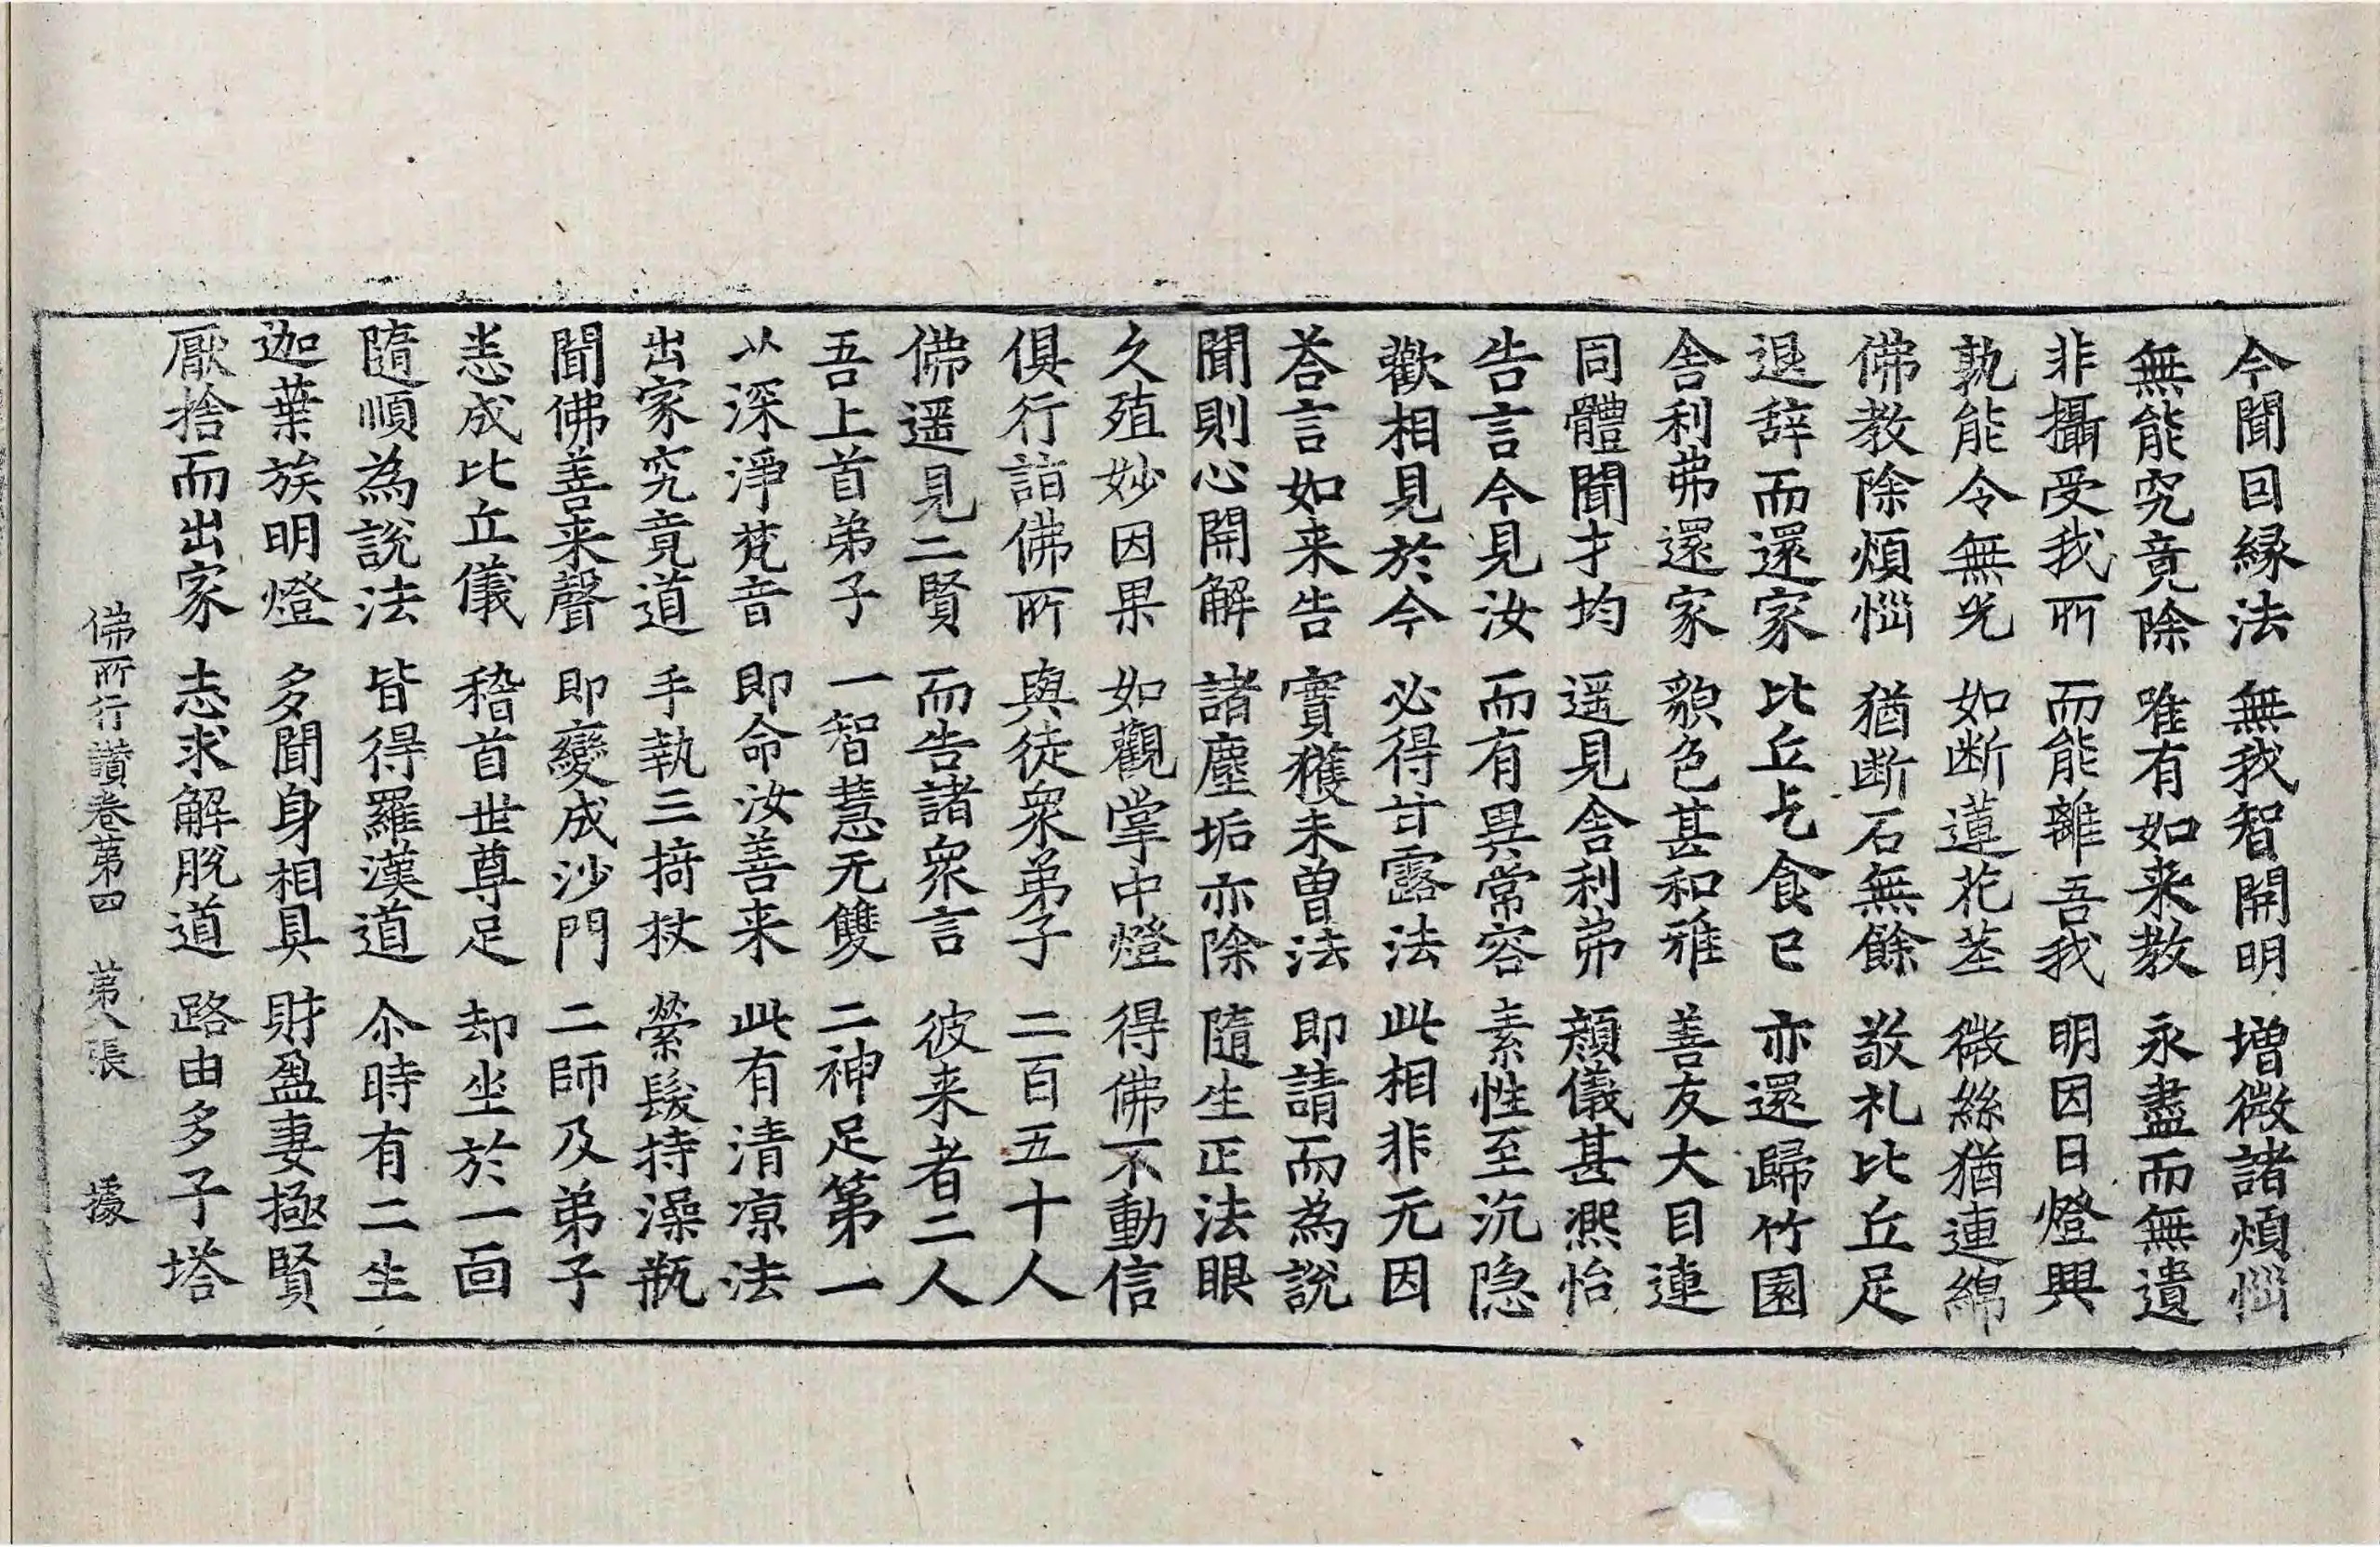 今聞因緣法　無我智開明　增微諸煩惱
無能究竟除　唯有如来教　永盡而無遺
非攝受我所　而能離吾我　明因日燈興
孰能令無光　如断蓮花莖　微絲猶連綿
佛教除煩惱　猶断石無餘　敬礼比丘足
退辞而還家　比丘乞食已　亦還歸竹園
舎利弗還家　貌色甚和雅　善友大目連
同體聞才均　遥見舎利弗　顔儀甚熈怡
告言今見汝　而有異常容　素性至沉隐
歡相見於今　必得甘露法　此相非无因
荅言如来告　實獲未曽法　即請而為說
聞則心開解　諸塵垢亦除　隨生正法眼
久殖妙因果　如觀掌中燈　得佛不動信
俱行詣佛所　與徒衆弟子　二百五十人
佛遥見二賢　而告諸衆言　彼来者二人
吾上首弟子　一智慧无雙　二神足第一
以深淨梵音　即命汝善来　此有清凉法
出家究竟道　手執三掎杖　縈髮持澡瓶
聞佛善来聲　即變成沙門　二師及弟子
悉成比丘儀　稽首世尊足　却坐於一面
隨順為說法　皆得羅漢道　尒時有二生
迦葉族明燈　多聞身相具　財盈妻極賢
厭捨而出家　志求解脫道　路由多子塔
佛所行讃卷第四　第八張　㨿